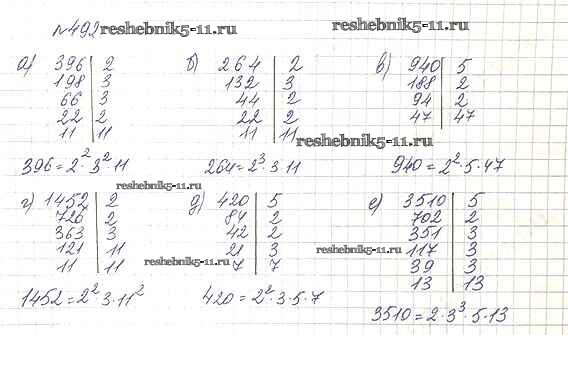 №492 reshebnik5-11.ru reshebnik5-11.ru
а) 396 | 2
198 | 3
66 | 3
22 | 2
11 | 11
396 = 2² · 3² · 11
б) 264 | 2
132 | 3
44 | 2
22 | 2
11 | 11
reshebnik5-11.ru
264 = 2³ · 3 · 11
в) 940 | 5
188 | 2
94 | 2
47 | 47
940 = 2² · 5 · 47
reshebnik5-11.ru
г) 1452 | 2
726 | 2
363 | 3
121 | 11
11 | 11
1452 = 2² · 3 · 11²
д) 420 | 5
84 | 2
42 | 2
21 | 3
7 | 7
reshebnik5-11.ru
420 = 2² · 3 · 5 · 7
е) 3510 | 5
702 | 2
351 | 3
117 | 3
39 | 3
13 | 13
reshebnik5-11.ru
3510 = 2 · 3³ · 5 · 13